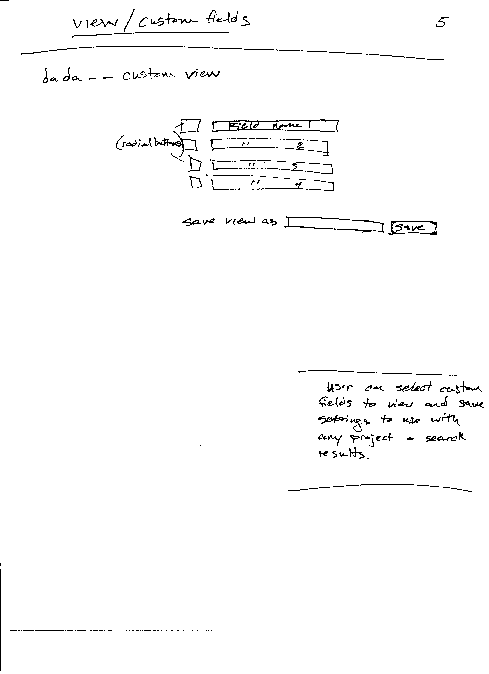 view/custom fields
5
dada -- custom view
Field Name 1
(radial buttons)
" 2
" 3
" 4
save view as
save
User can select custom
fields to view and save
settings to use with
any project - search
results.